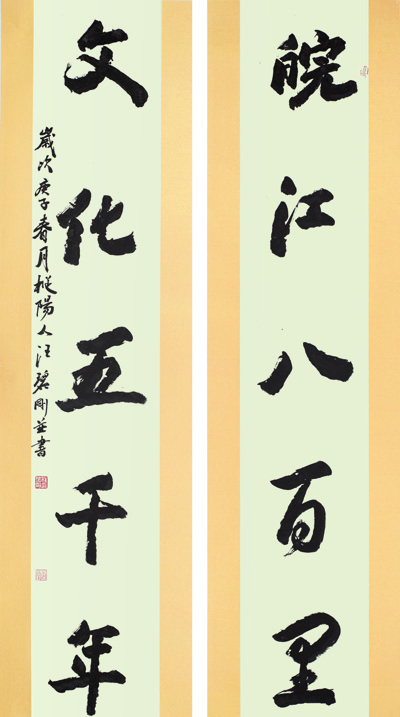 皖江八百里
文化五千年
歲次庚子春月樅陽人汪碧剛並書